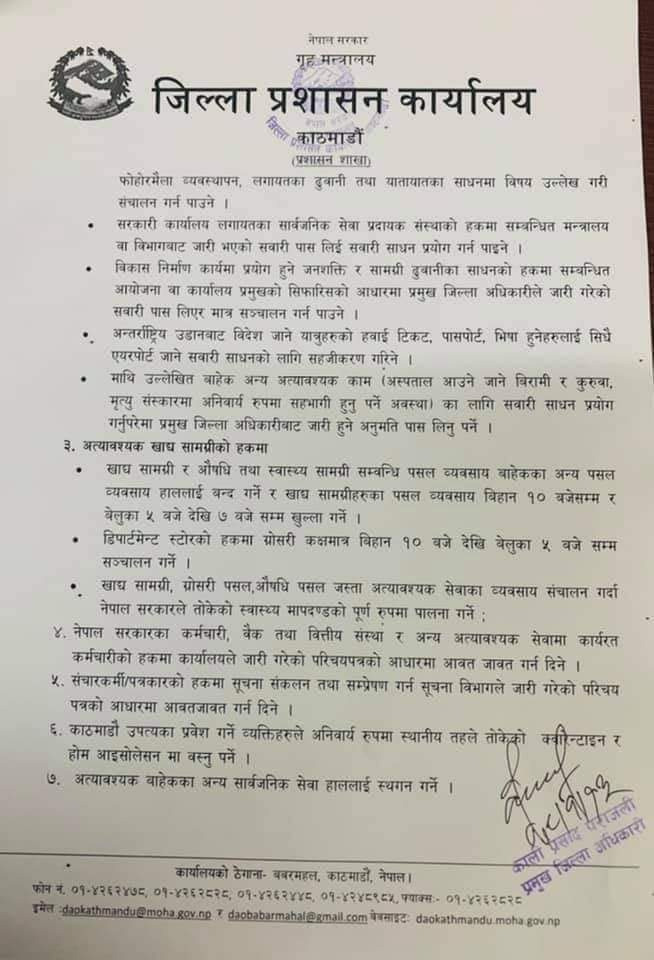 नेपाल सरकार
गृह मन्त्रालय
जिल्ला प्रशासन कार्यालय
काठमाडौं
(प्रशासन शाखा)
फोहोरमैला व्यवस्थापन, लगायतका ढुवानी तथा यातायातका साधनमा विषय उल्लेख गरी
संचालन गर्न पाउने ।
• सरकारी कार्यालय लगायतका सार्वजनिक सेवा प्रदायक संस्थाको हकमा सम्बन्धित मन्त्रालय
वा विभागबाट जारी भएको सवारी पास लिई सवारी साधन प्रयोग गर्न पाइने ।
• विकास निर्माण कार्यमा प्रयोग हुने जनशक्ति र सामग्री ढुवानीका साधनको हकमा सम्बन्धित
आयोजना वा कार्यालय प्रमुखको सिफारिसको आधारमा प्रमुख जिल्ला अधिकारीले जारी गरेको
सवारी पास लिएर मात्र सञ्चालन गर्न पाउने ।
• अन्तर्राष्ट्रिय उडानबाट विदेश जाने यात्रुहरुको हवाई टिकट, पासपोर्ट, भिषा हुनेहरुलाई सिधै
एयरपोर्ट जाने सवारी साधनको लागि सहजीकरण गरिने ।
• माथि उल्लेखित बाहेक अन्य अत्यावश्यक काम (अस्पताल आउने जाने बिरामी र कुरुवा,
मृत्यु संस्कारमा अनिवार्य रुपमा सहभागी हुनु पर्ने अवस्था) का लागि सवारी साधन प्रयोग
गर्नुपरेमा प्रमुख जिल्ला अधिकारीबाट जारी हुने अनुमति पास लिनु पर्ने ।
३. अत्यावश्यक खाद्य सामग्रीको हकमा
• खाद्य सामग्री र औषधि तथा स्वास्थ्य सामग्री सम्बन्धि पसल व्यवसाय बाहेकका अन्य पसल
व्यवसाय हाललाई बन्द गर्ने र खाद्य सामग्रीहरुका पसल व्यवसाय विहान १० बजेसम्म र
बेलुका ५ बजे देखि ७ बजे सम्म खुल्ला गर्ने ।
• डिपार्टमेन्ट स्टोरको हकमा ग्रोसरी कक्षमात्र विहान १० बजे देखि बेलुका ५ बजे सम्म
सञ्चालन गर्ने ।
• खाद्य सामग्री, ग्रोसरी पसल,औषधि पसल जस्ता अत्यावश्यक सेवाका व्यवसाय संचालन गर्दा
नेपाल सरकारले तोकेको स्वास्थ्य मापदण्डको पूर्ण रुपमा पालना गर्ने ;
४. नेपाल सरकारका कर्मचारी, बैक तथा वित्तीय संस्था र अन्य अत्यावश्यक सेवामा कार्यरत
कर्मचारीको हकमा कार्यालयले जारी गरेको परिचयपत्रको आधारमा आवत जावत गर्न दिने ।
५. संचारकर्मी/पत्रकारको हकमा सूचना संकलन तथा सम्प्रेषण गर्न सूचना विभागले जारी गरेको परिचय
पत्रको आधारमा आवतजावत गर्न दिने ।
६. काठमाडौं उपत्यका प्रवेश गर्ने व्यक्तिहरुले अनिवार्य रुपमा स्थानीय तहले तोकेको क्वारेन्टाइन र
होम आइसोलेसन मा बस्नु पर्ने ।
७. अत्यावश्यक बाहेकका अन्य सार्वजनिक सेवा हाललाई स्थगन गर्ने ।
काली प्रसाद पराजुली
प्रमुख जिल्ला अधिकारी
कार्यालयको ठेगाना- बबरमहल, काठमाडौं, नेपाल।
फोन नं. ०१-४२६२४७८, ०१-४२६२८२८, ०१-४२६२४४८, ०१-४२४८९८५, फ्याक्सः- ०१-४२६२८२८
इमेल :daokathmandu@moha.gov.np र daobabarmahal@gmail.com वेवसाइटः daokathmandu.moha.gov.np